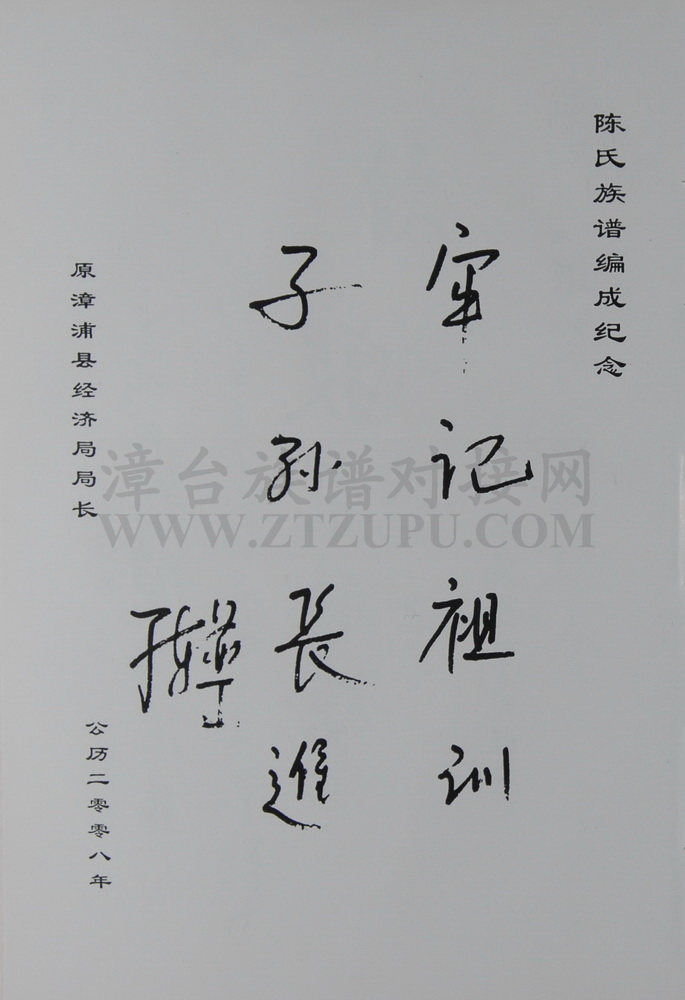 陈氏族谱编成纪念
牢记祖训
子孙长進
原漳浦县经济局局长
公历二零零八年
漳台族谱对接网
WWW.ZTZUPU.COM